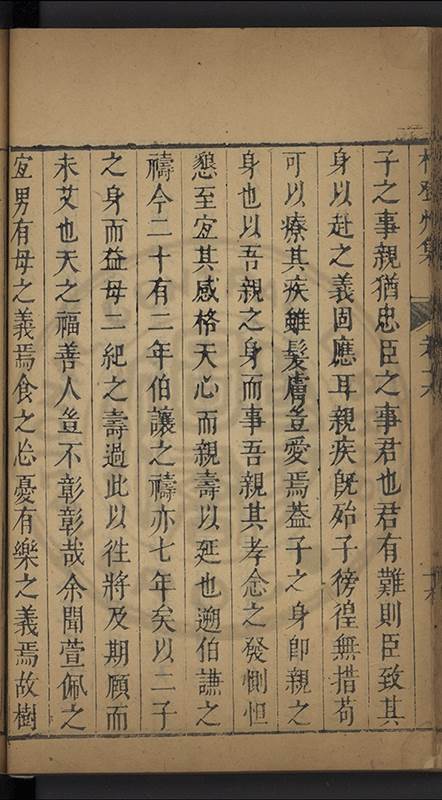 杜登州集 卷之六
子之事親猶忠臣之事君也君有難則臣致其
身以赴之義固應耳親疾旣殆子徬徨無措茍
可以療其疾雖髮膚豈愛焉葢子之身卽親之
身也以吾親之身而事吾親其孝念之發惻怛
懇至宐其感格天心而親壽以延也遡伯謙之
禱今二十有二年伯讓之禱亦七年矣以二子
之身而益母二紀之壽過此以徃將及期頤而
未艾也天之福善人豈不彰彰哉余聞萱佩之
宐男有母之義焉食之忘憂有樂之義焉故樹